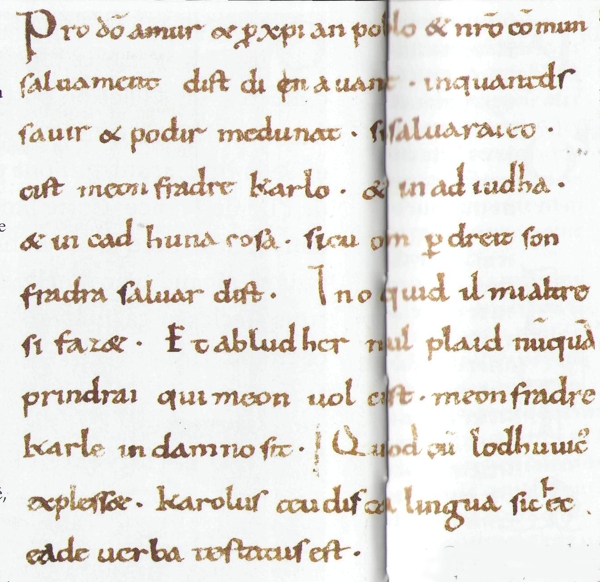 Pro dõ amur & p̱ xp̄i an poblo & nr̄o cõmun
saluament · dist di en auant · inquantds
sauir & podir medunat · sisaluaraieo ·
cist meon fradre Karlo · & in ad iudha ·
& in cad huna cosa · sicu om p̱ dreit son
fradra saluar dift · Ino quid il mialtre
si faz& · Et abludher nul plaid nũquã
prindrai qui meon uol cist · meonfradre
Karle in damno sit · Quod cũ lodhuuic᾽
explesset · Karolus teudisca lingua sic ħ ec
eade uerba testatus est ·